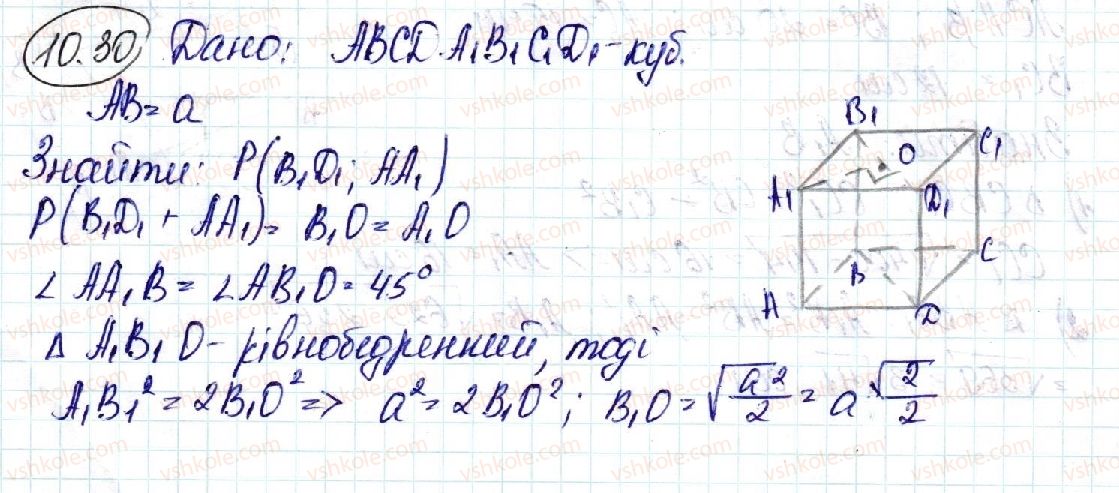 10.30 Дано: ABCDA₁B₁C₁D₁ - куб.
AB = a
Знайти: P(B₁D₁; AA₁)
P(B₁D₁ + AA₁) = B₁O = A₁O
∠AA₁B = ∠AB₁O = 45°
Δ A₁B₁O - рівнобедренний, тоді
A₁B₁² = 2B₁O² => a² = 2B₁O²; B₁O = √(a²/2) = a √2/2
B₁
O
C₁
A₁
D₁
B
C
A
D
vshkole.com